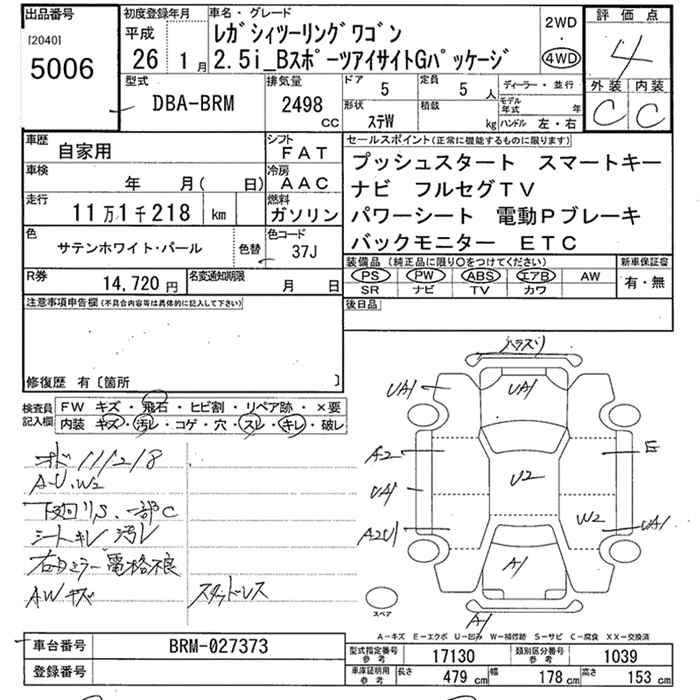 出品番号
[2040]
5006
初度登録年月
平成
26 1 月
車名・グレード
レガシィツーリングワゴン
2.5i_BスポーツアイサイトGパッケージ
2WD
・
4WD
評価点
4
外装 内装
C C
型式
DBA-BRM
排気量
2498
CC
ドア
5
定員
5 人
形状
ステW
積載
kg
ディーラー・並行
モデル年式 年
ハンドル 左・右
車歴
自家用
シフト
FAT
車検
年 月( 日)
冷房
AAC
走行
11万1千218 km
燃料
ガソリン
色
サテンホワイト・パール
色替
色コード
37J
R券
14,720 円
名変通知期限
月 日
セールスポイント(正常に機能するものに限ります)
プッシュスタート スマートキー
ナビ フルセグTV
パワーシート 電動Pブレーキ
バックモニター ETC
装備品(純正品に限り○をつけてください)
PS PW ABS エアB AW
SR ナビ TV カワ
新車保証書
有・無
注意事項申告欄(不具合内容等は具体的に記入して下さい)
後日品
修復歴 有〔箇所 〕
検査員記入欄
FW キズ・飛石・ヒビ割・リペア跡・×要
内装 キズ・汚レ・コゲ・穴・スレ・キレ・破レ
オド 111218
A・U・W2
下廻りS、一部C
シートキレ 汚レ
右ドアミラー電格不良
AWキズ
スタッドレス
UA1
UA1
A2
E
U2
UA1
W2
A2U1
UA1
A1
A1
スペア
A-キズ E-エクボ U-凹み W-補修跡 S-サビ C-腐食 XX-交換済
車台番号
BRM-027373
登録番号
型式指定番号 参考
17130
類別区分番号 参考
1039
車庫証明用 参考
長さ 479 cm 幅 178 cm 高さ 153 cm